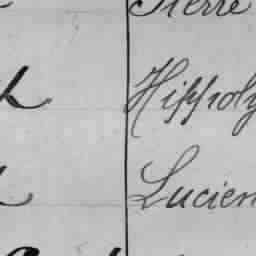 Pierre
Hippoly
Lucien